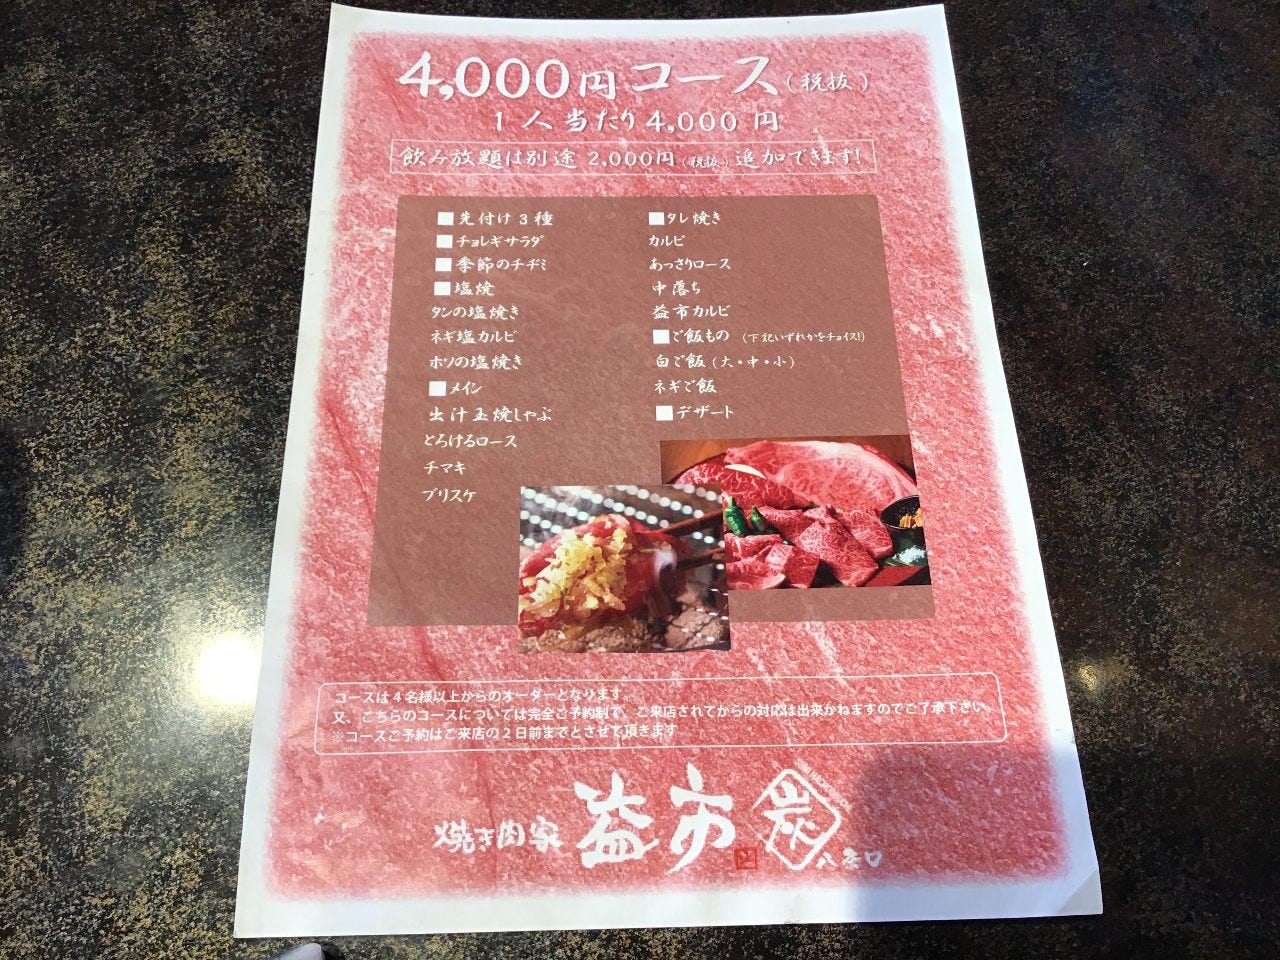 4,000円コース(税抜)
1人当たり4,000円
飲み放題は別途2,000円(税抜)追加できます!
■先付け3種
■チョレギサラダ
■季節のチヂミ
■塩焼
タンの塩焼き
ネギ塩カルビ
ホソの塩焼き
■メイン
出汁玉焼しゃぶ
とろけるロース
チマキ
ブリスケ
■タレ焼き
カルビ
あっさりロース
中落ち
益市カルビ
■ご飯もの (下記いずれかをチョイス!)
白ご飯(大・中・小)
ネギご飯
■デザート
コースは4名様以上からのオーダーとなります。
又、こちらのコースについては完全ご予約制で、ご来店されてからの対応は出来かねますのでご了承下さい。
※コースご予約はご来店の2日前までとさせて頂きます
焼き肉家 益市 炭 八条口